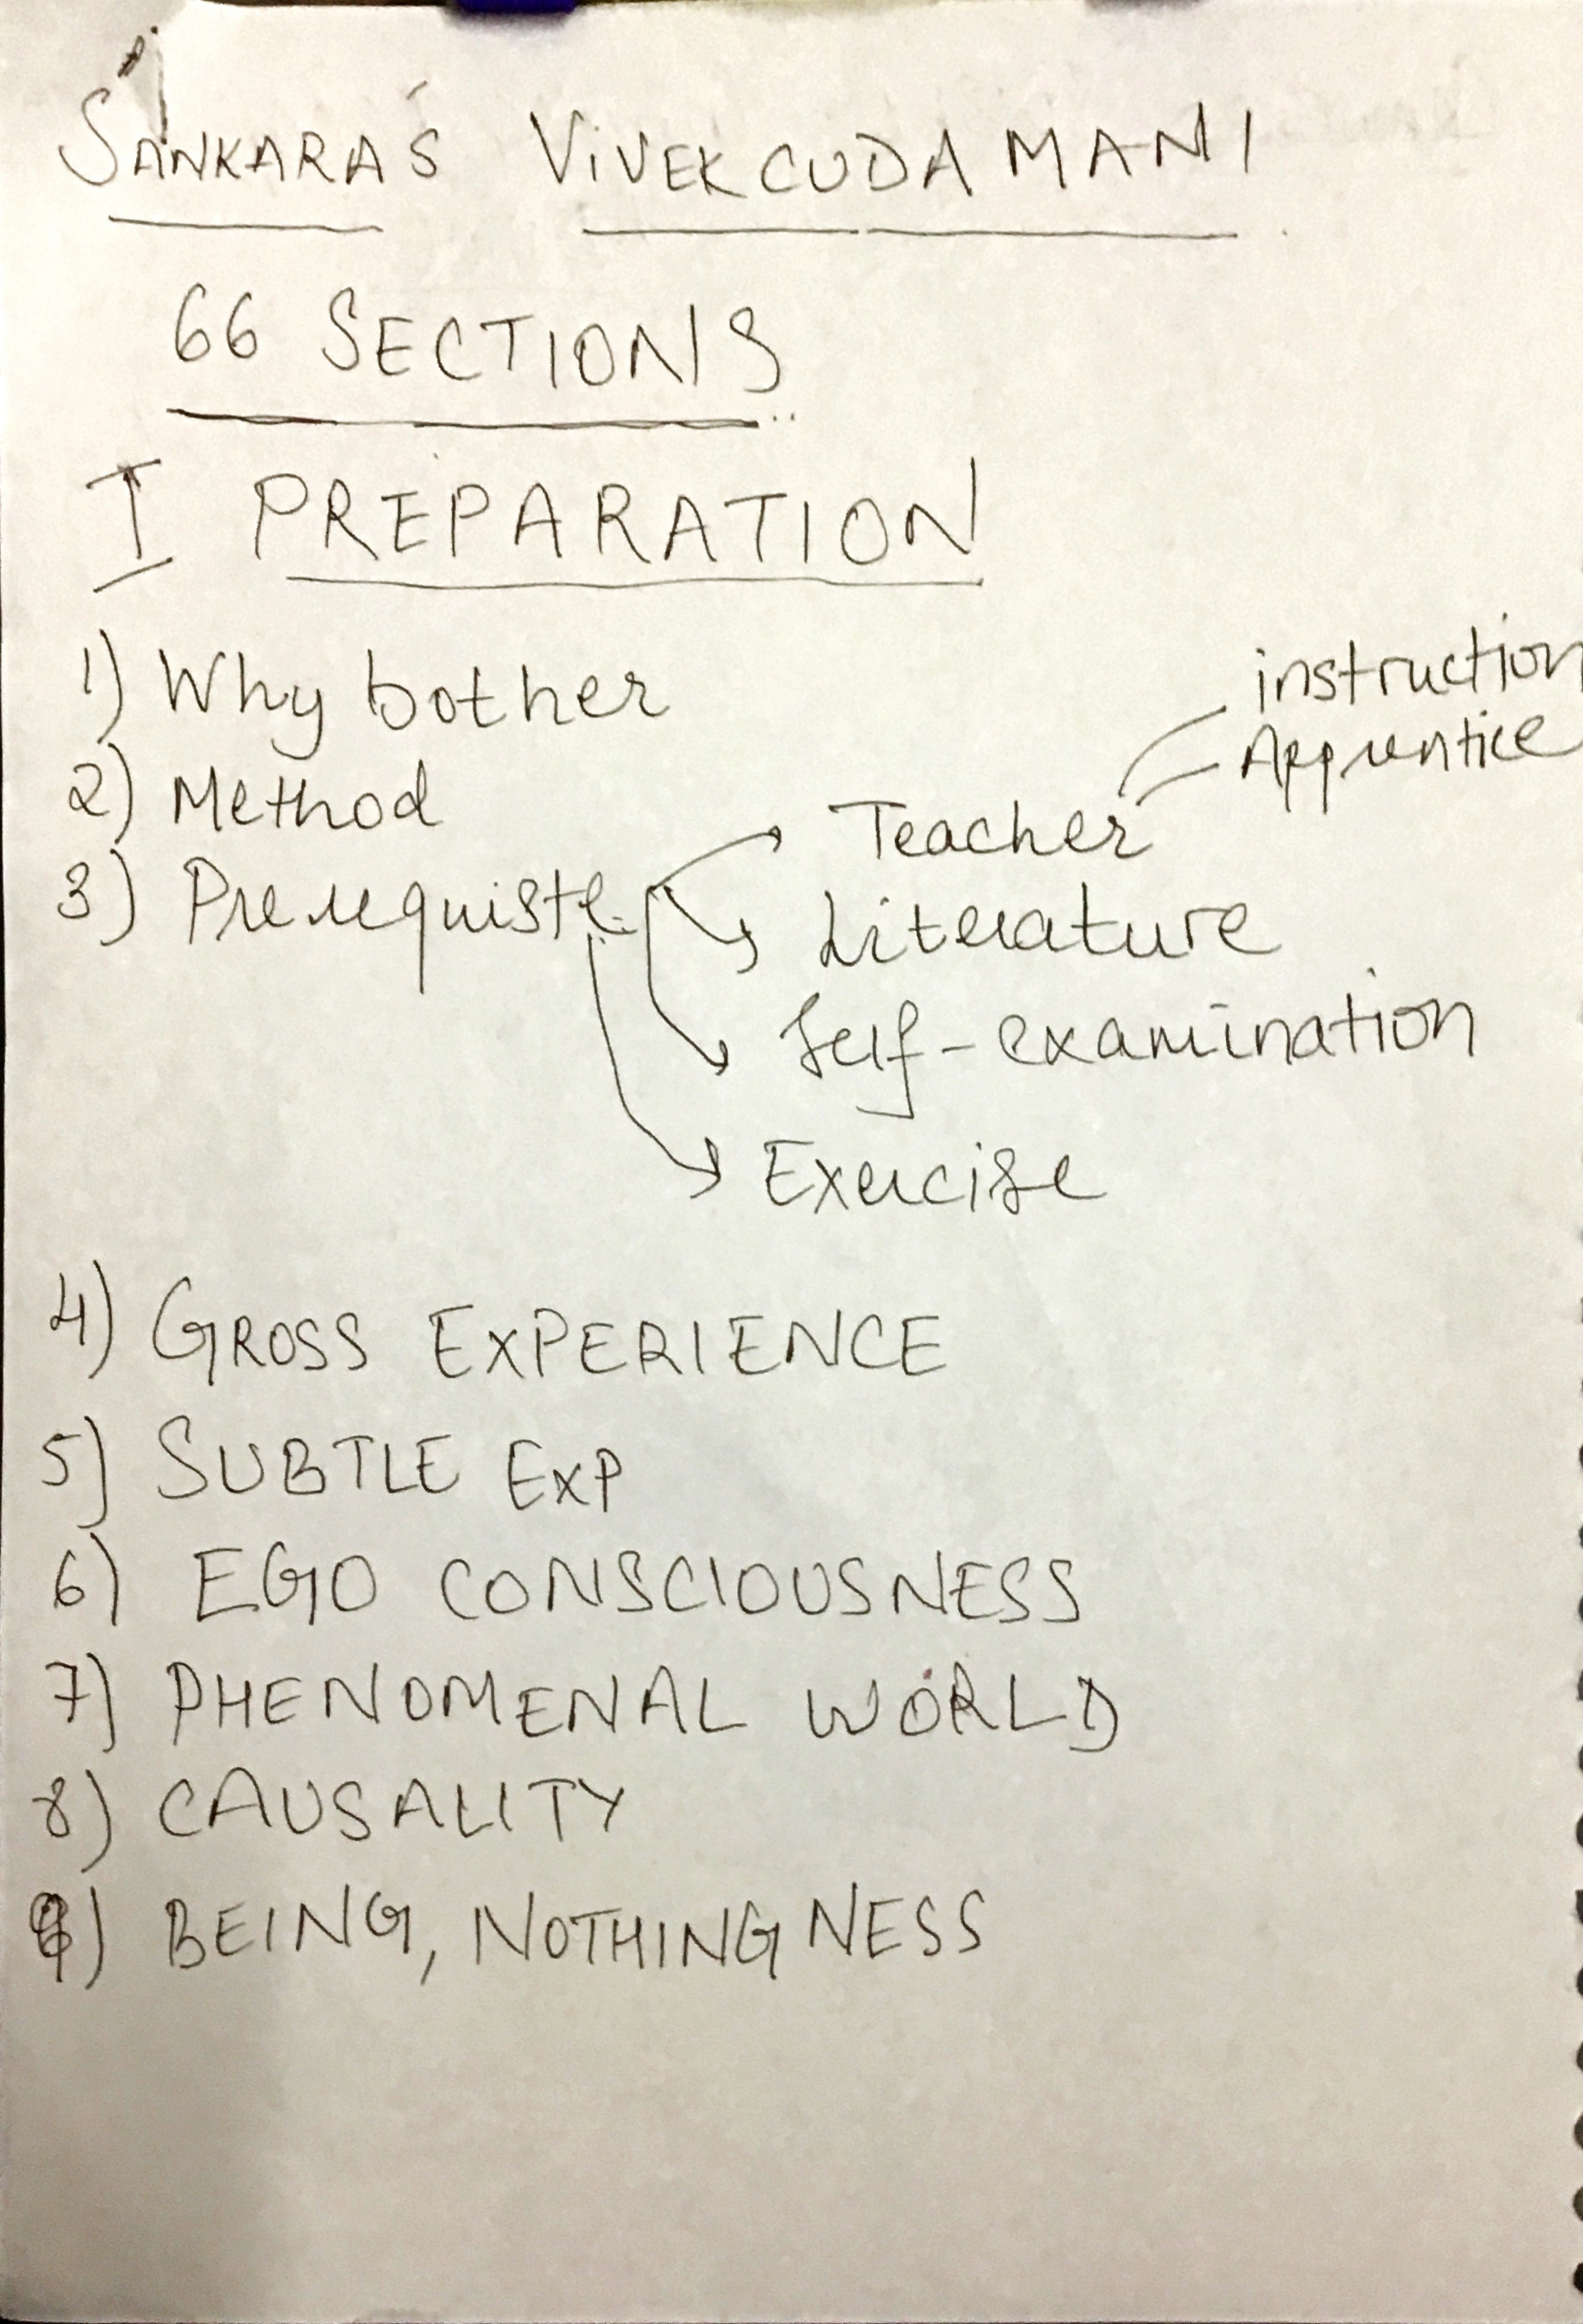 SANKARA'S VIVEKCUDAMANI
66 SECTIONS
I PREPARATION
1) Why bother
instruction
Apprentice
2) Method
Teacher
3) Prerequiste
Literature
Self-examination
Exercise
4) GROSS EXPERIENCE
5) SUBTLE EXP
6) EGO CONSCIOUSNESS
7) PHENOMENAL WORLD
8) CAUSALITY
9) BEING, NOTHINGNESS